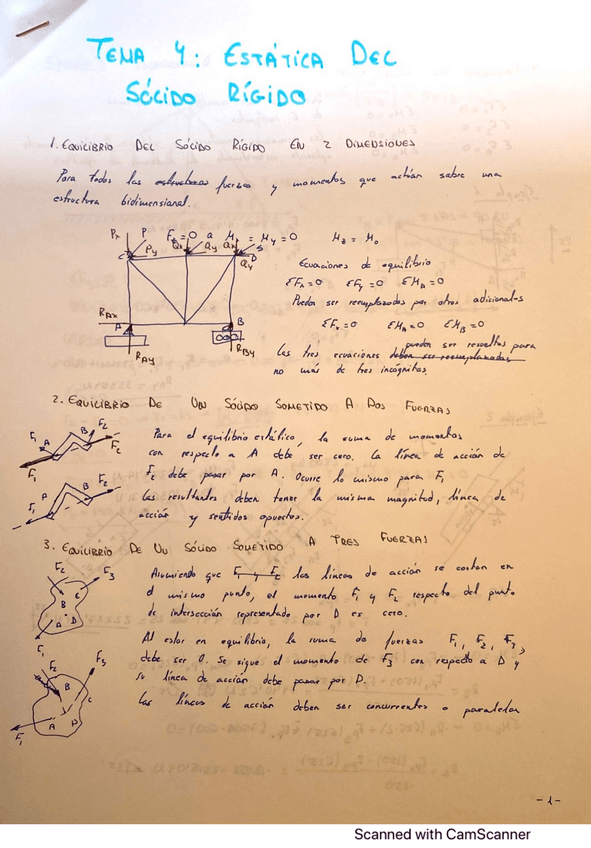 TEMA 4: ESTÁTICA DEL
SÓLIDO RÍGIDO
1. EQUILIBRIO DEL SÓLIDO RÍGIDO EN 2 DIMENSIONES
Para todas las estructuras fuerzas y momentos que actúan sobre una
estructura bidimensional.
Px P Fz=0 a Mx=My=0 Mz=Mo
C Py Qx Qy Qx S D
Qy
RAx A B
RAy RBy
Ecuaciones de equilibrio
ΣFx=0 ΣFy=0 ΣMA=0
Pueden ser reemplazadas por otras adicionales
ΣFx=0 ΣMA=0 ΣMB=0
pueden ser resueltas para
Las tres ecuaciones deben ser reemplazadas
no más de tres incógnitas.
2. EQUILIBRIO DE UN SÓLIDO SOMETIDO A DOS FUERZAS
F1 A B F2 F2
F1
F1 A B F2
Para el equilibrio estático, la suma de momentos
con respecto a A debe ser cero. La línea de acción de
F2 debe pasar por A. Ocurre lo mismo para F1
Las resultantes deben tener la misma magnitud, línea de
acción y sentidos opuestos.
3. EQUILIBRIO DE UN SÓLIDO SOMETIDO A TRES FUERZAS
F2 F3
B C
A D
F1
F2 F3
B C
A D
F1
Asumiendo que F1 y F2 las líneas de acción se cortan en
el mismo punto, el momento F1 y F2 respecto del punto
de intersección representado por D es cero.
Al estar en equilibrio, la suma de fuerzas F1, F2, F3,
debe ser 0. Se sigue el momento de F3 con respecto a D y
su línea de acción debe pasar por D.
Las líneas de acción deben ser concurrentes o paralelas
-1-
Scanned with CamScanner